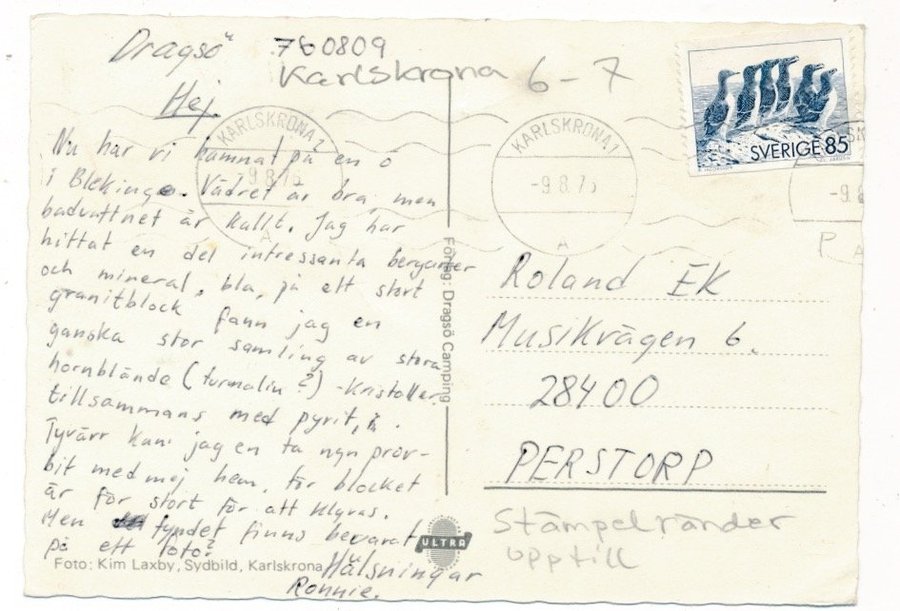 Dragsö
760809
Karlskrona 6-7
Hej.
Nu har vi hamnat på en ö
i Blekinge. Vädret är bra, men
badvattnet är kallt. Jag har
hittat en del intressanta bergarter
och mineral, bla, på ett stort
granitblock fann jag en
ganska stor samling av stora
hornblände (turmalin?) -Kristaller
tillsammans med pyrit,
Tyvärr kan jag en ta prov-
bit med mej hem, för blocket
är för stort för att klyvas.
Men fyndet finns bevarat
på ett foto?
Hälsningar
Ronnie.
Foto: Kim Laxby, Sydbild, Karlskrona
ULTRA
Förlag: Dragsö Camping
KARLSKRONA 1
-9.8.76
A
KARLSKRONA 1
-9.8.76
A
SVERIGE 85
-9.8
P
A
Roland EK
Musikvägen 6.
28400
PERSTORP
Stämpelränder
upptill